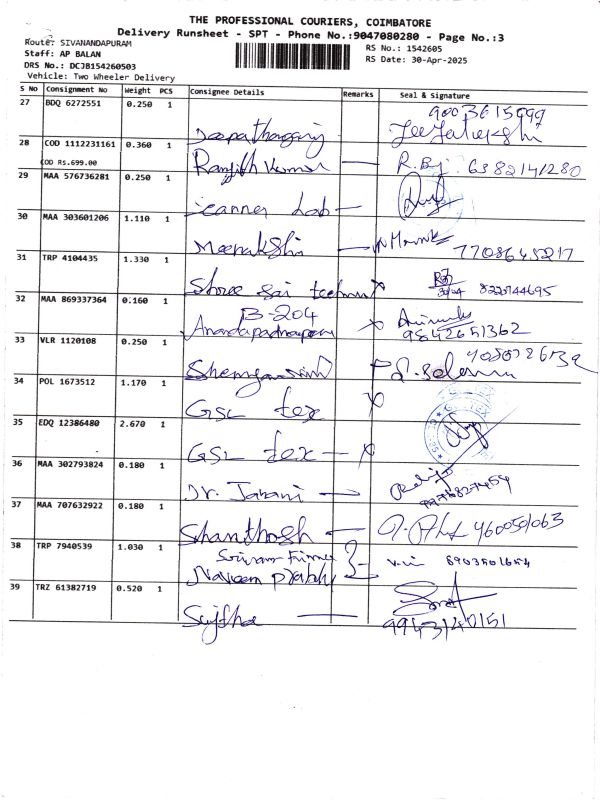 THE PROFESSIONAL COURIERS, COIMBATORE
Delivery Runsheet - SPT - Phone No.:9047080280 - Page No.:3
Route: SIVANANDAPURAM
RS No.: 1542605
Staff: AP BALAN
RS Date: 30-Apr-2025
DRS No.: DCJB154260503
Vehicle: Two Wheeler Delivery
S No Consignment No Weight PCS Consignee Details Remarks Seal & Signature
27 BDQ 6272551 0.250 1
28 COD 1112231161 0.360 1 Ranjith Kumar R.By. 6382141280
COD RS.699.00
29 MAA 576736281 0.250 1 Lab
30 MAA 303601206 1.110 1 Meenakshi
31 TRP 4104435 1.330 1 Shree Sai 8220944695
32 MAA 869337364 0.160 1 B-204
9842651362
33 VLR 1120108 0.250 1
34 POL 1673512 1.170 1 GSL tex
35 EDQ 12386480 2.670 1 GSL tex
36 MAA 302793824 0.180 1 Dr. Janani
37 MAA 707632922 0.180 1 Shanthosh
38 TRP 7940539 1.030 1 Naveen Prabhu 8903501654
39 TRZ 61382719 0.520 1 Sujitha
9943140151